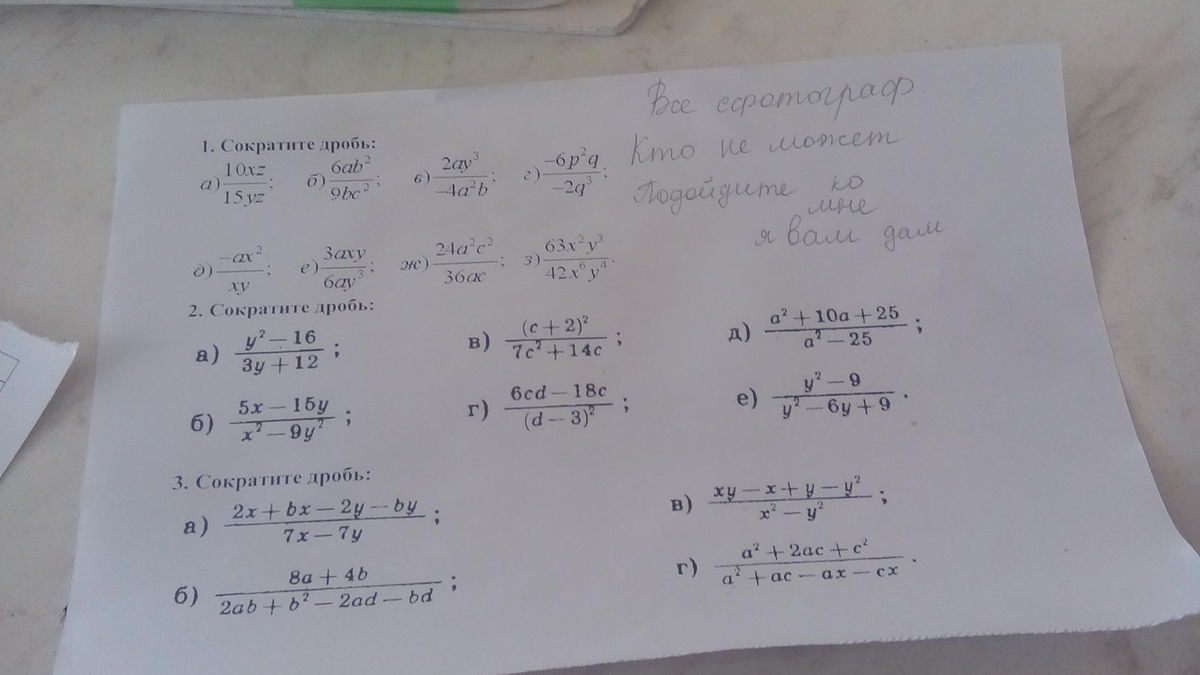 Все сфотограф.
Кто не может
Подойдите ко
мне
я вам дам
1. Сократите дробь:
а) 10xz/15yz; б) 6ab²/9bc²; в) 2ay³/−4a²b; г) −6p²q/−2q³;
д) −ax²/xy; е) 3axy/6ay³; ж) 24a²c²/36ac; з) 63x²y³/42x⁶y⁴.
2. Сократите дробь:
а) y² − 16/3y + 12; в) (c + 2)²/7c² + 14c; д) a² + 10a + 25/a² − 25;
б) 5x − 15y/x² − 9y²; г) 6cd − 18c/(d − 3)²; е) y² − 9/y² − 6y + 9.
3. Сократите дробь:
а) 2x + bx − 2y − by/7x − 7y; в) xy − x + y − y²/x² − y²;
б) 8a + 4b/2ab + b² − 2ad − bd; г) a² + 2ac + c²/a² + ac − ax − cx.